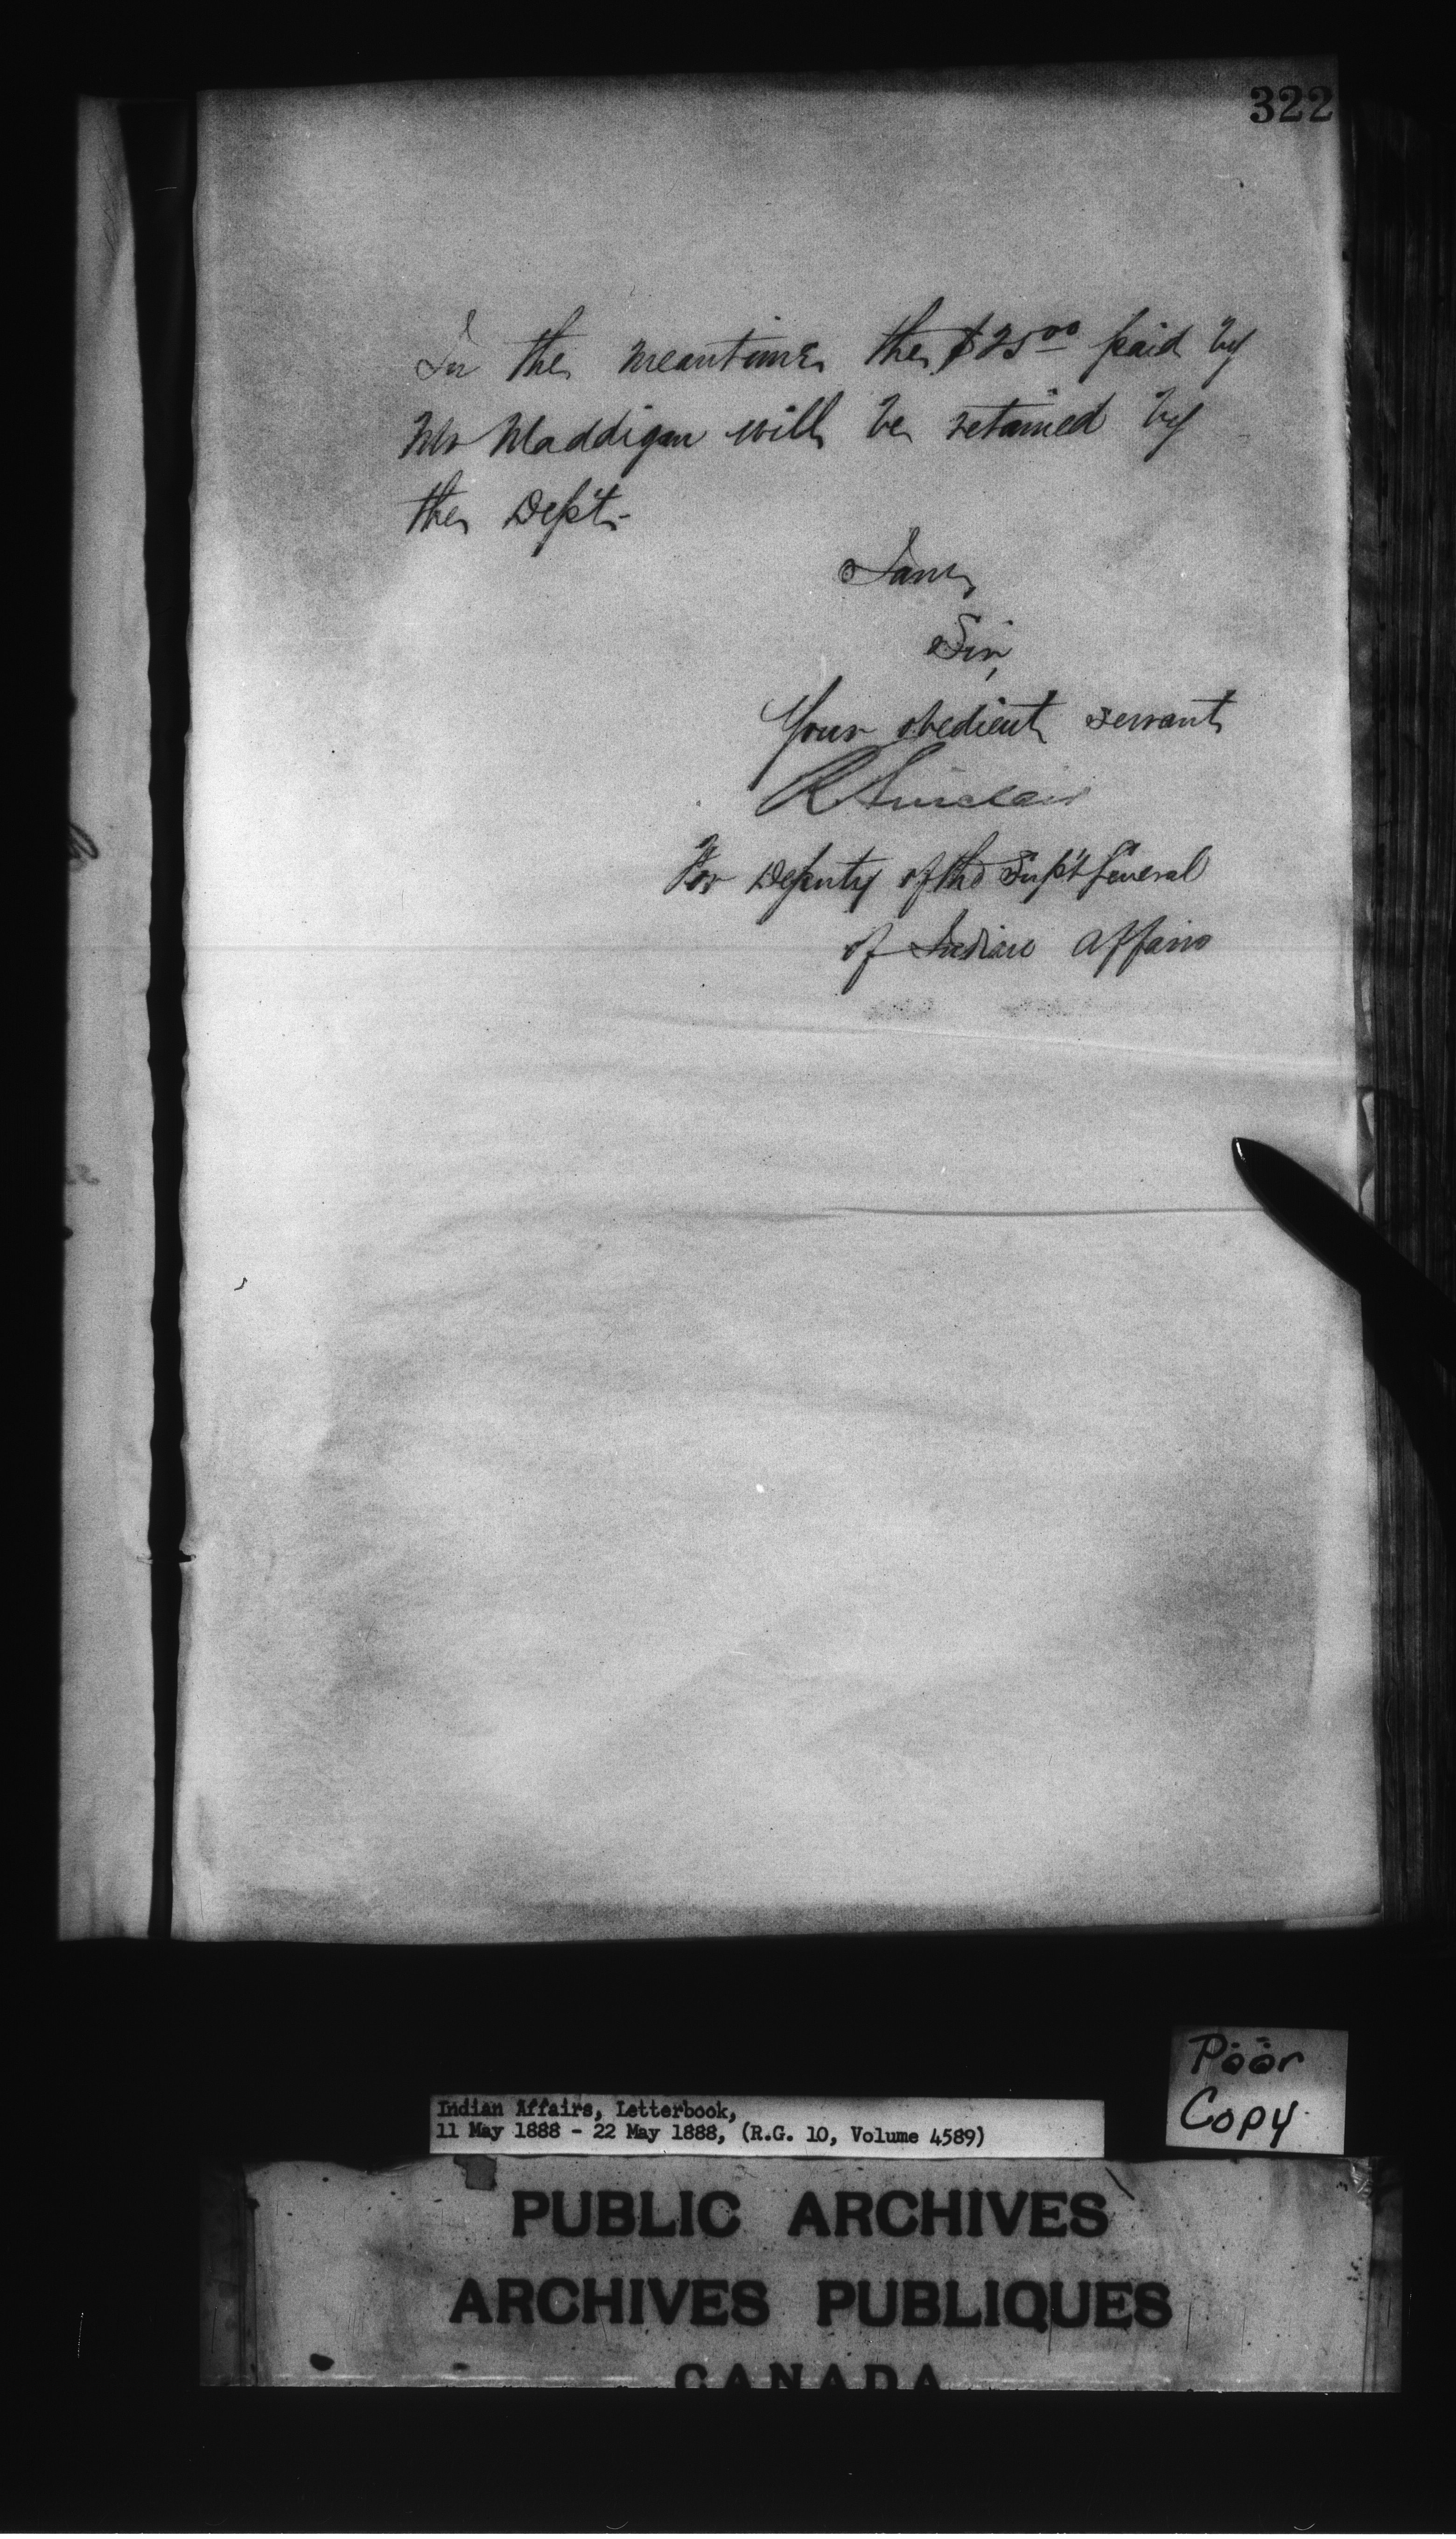 322
In the meantime the $25.00 paid by
Mr Maddigan will be retained by
the Dep't.
I am,
Sir,
Your obedient servant
R Sinclair
For Deputy of the Sup't General
of Indian Affairs
Poor
Copy.
Indian Affairs, Letterbook,
11 May 1888 - 22 May 1888, (R.G. 10, Volume 4589)
PUBLIC ARCHIVES
ARCHIVES PUBLIQUES
CANADA